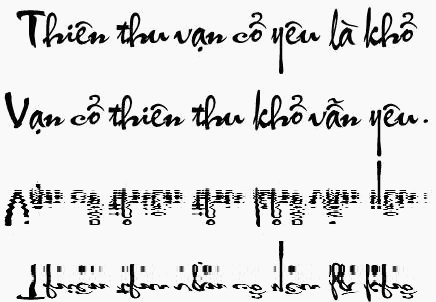 Thiên thu vạn cổ yêu là khổ
Vạn cổ thiên thu khổ vẫn yêu.